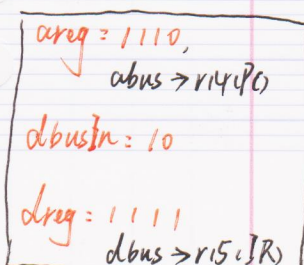 areg = 1110,
abus → r14(PC)
dbusIn = 10
dreg = 1111
dbus → r15(IR)